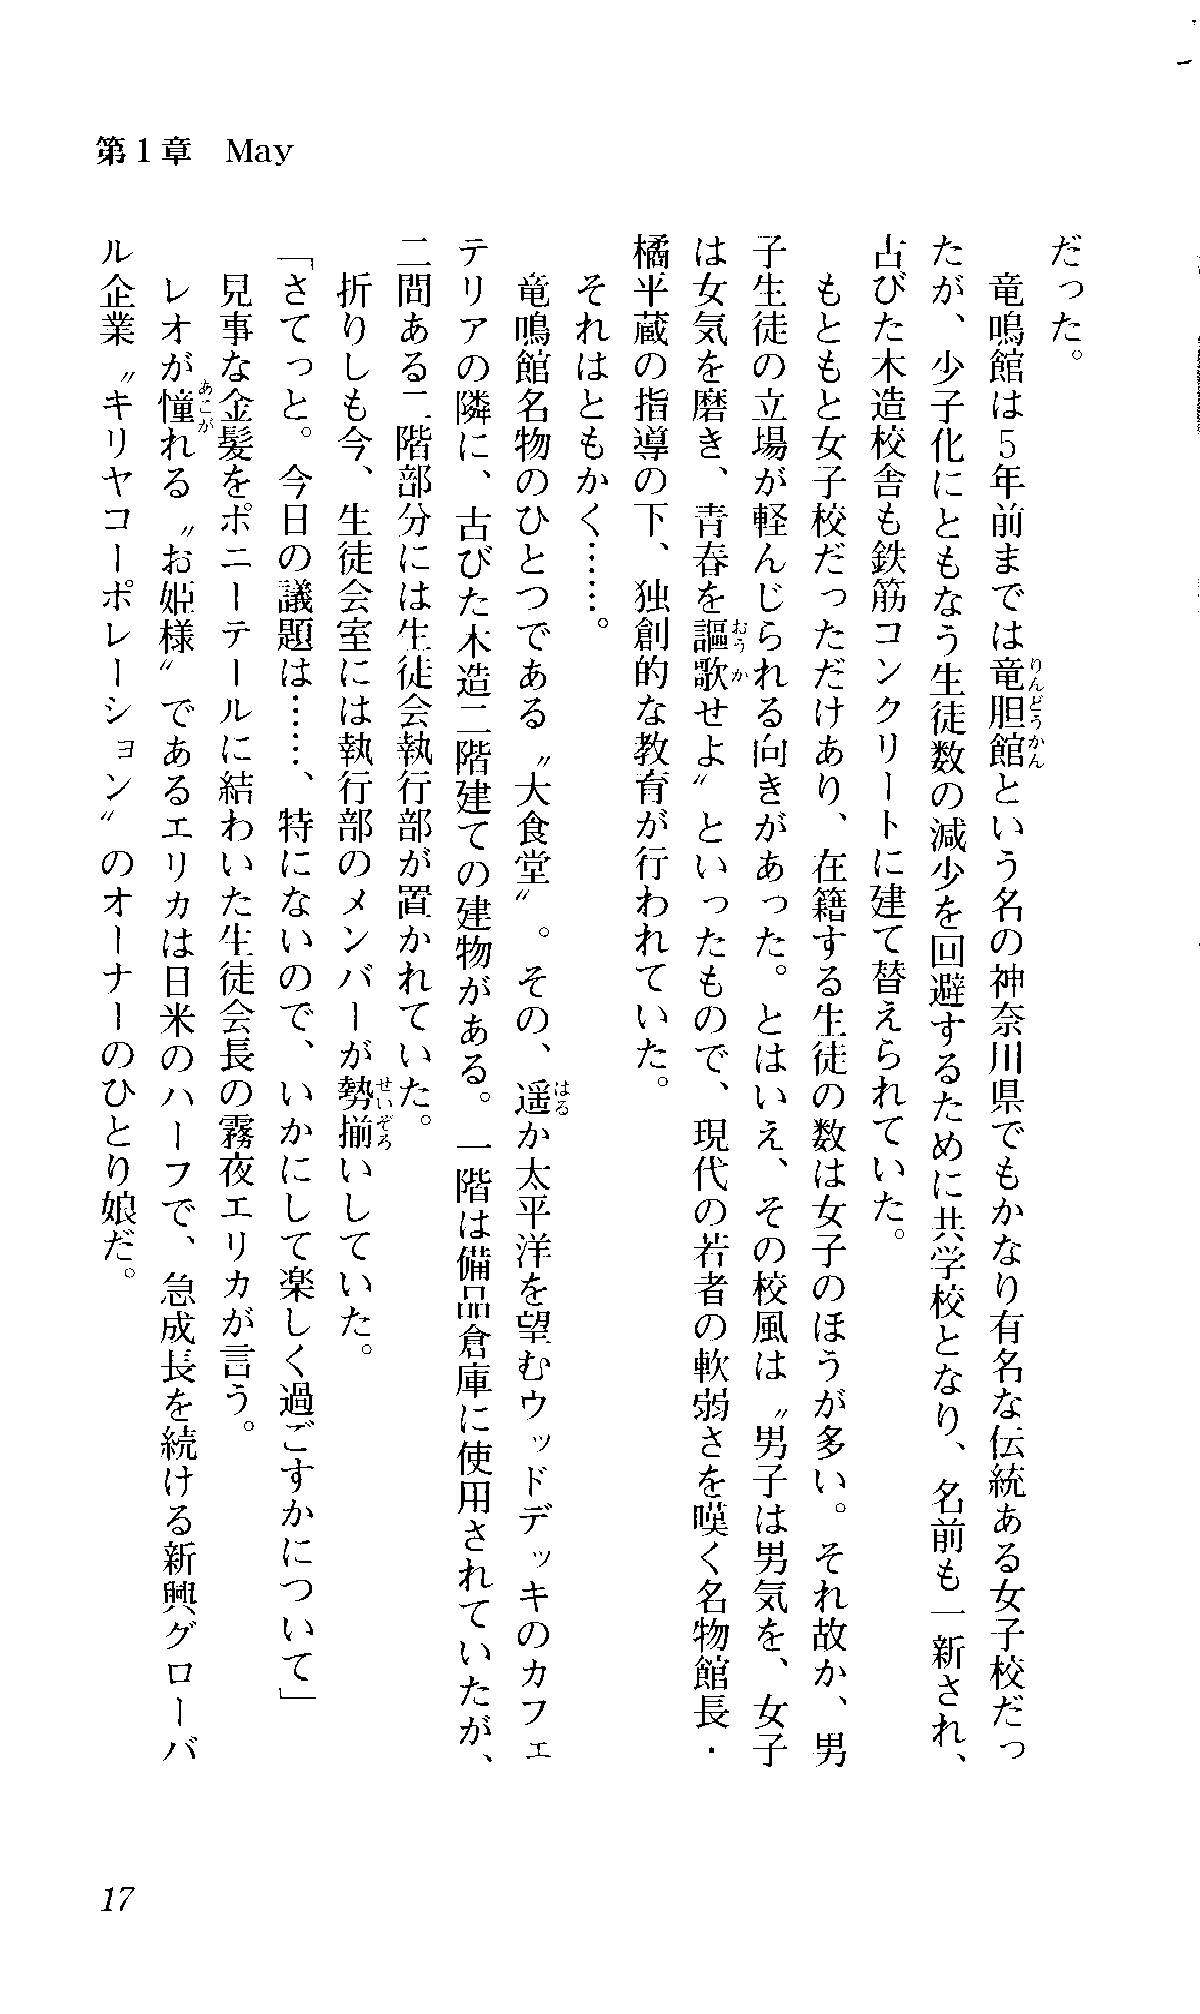 第1章　May
だった。
　竜鳴館は5年前までは竜胆館という名の神奈川県でもかなり有名な伝統ある女子校だっ
たが、少子化にともなう生徒数の減少を回避するために共学校となり、名前も一新され、
古びた木造校舎も鉄筋コンクリートに建て替えられていた。
　もともと女子校だっただけあり、在籍する生徒の数は女子のほうが多い。それ故か、男
子生徒の立場が軽んじられる向きがあった。とはいえ、その校風は〝男子は男気を、女子
は女気を磨き、青春を謳歌せよ〟といったもので、現代の若者の軟弱さを嘆く名物館長・
橘平蔵の指導の下、独創的な教育が行われていた。
　それはともかく……。
　竜鳴館名物のひとつである〝大食堂〟。その、遥か太平洋を望むウッドデッキのカフェ
テリアの隣に、古びた木造二階建ての建物がある。一階は備品倉庫に使用されていたが、
二間ある二階部分には生徒会執行部が置かれていた。
　折りしも今、生徒会室には執行部のメンバーが勢揃いしていた。
「さてっと。今日の議題は……、特にないので、いかにして楽しく過ごすかについて」
　見事な金髪をポニーテールに結わいた生徒会長の霧夜エリカが言う。
　レオが憧れる〝お姫様〟であるエリカは日米のハーフで、急成長を続ける新興グローバ
ル企業〝キリヤコーポレーション〟のオーナーのひとり娘だ。
17